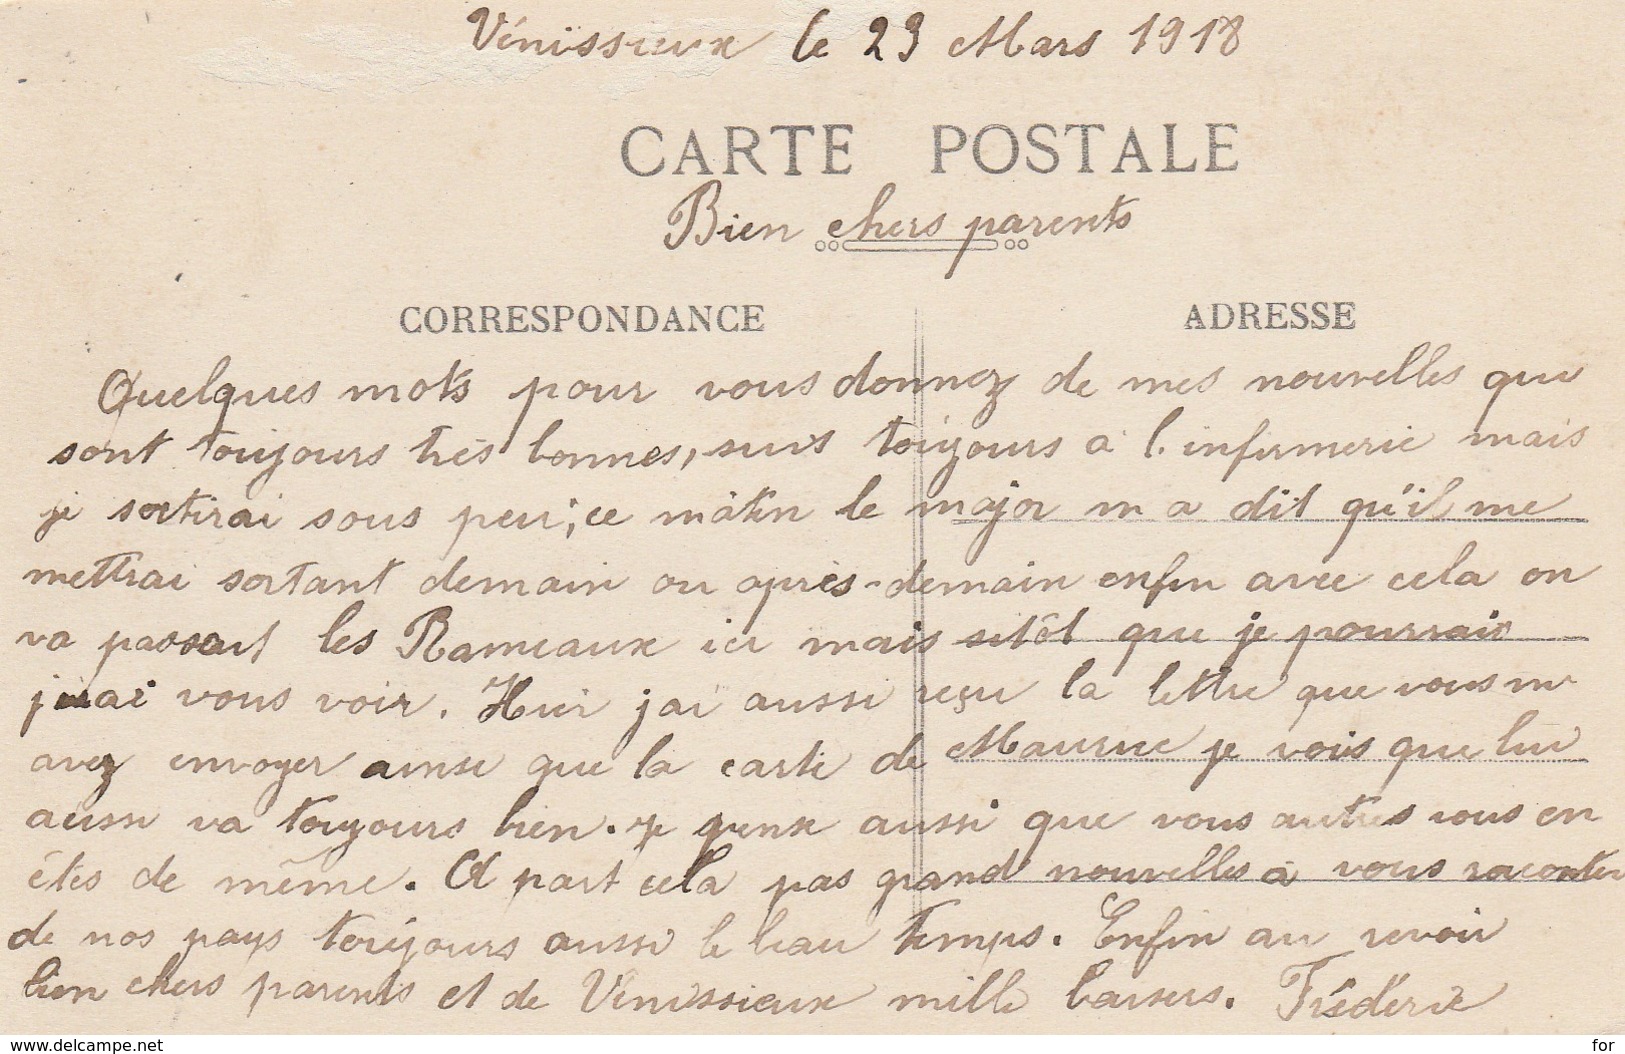 Vénissieux le 23 Mars 1918
CARTE POSTALE
Bien chers parents
CORRESPONDANCE
ADRESSE
Quelques mots pour vous donnez de mes nouvelles que
sont toujours très bonnes, suis toujours à l'infirmerie mais
je sortirai sous peu; ce mâtin le major m a dit qu'il me
mettrai sortant demain ou après-demain enfin avec cela on
va passait les Rameaux ici mais sitôt que je pourrais
j'irai vous voir. Hier j'ai aussi reçu la lettre que vous m'
avez envoyer ainsi que la carte de Maurice je vois que lui
aussi va toujours bien. Je pense aussi que vous autres vous en
êtes de même. A part cela pas grand nouvelles à vous raconter
de nos pays toujours aussi le beau temps. Enfin au revoir
bien chers parents et de Vénissieux mille baisers. Frédéric
www.delcampe.net
for